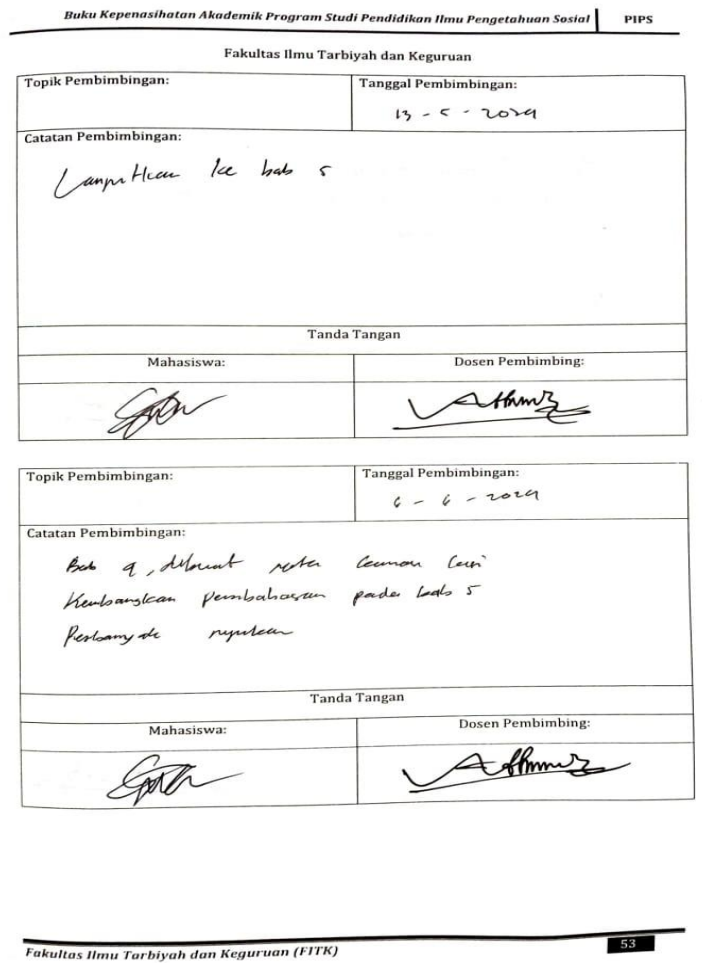 Buku Kepenasihatan Akademik Program Studi Pendidikan Ilmu Pengetahuan Sosial PIPS
Fakultas Ilmu Tarbiyah dan Keguruan
Topik Pembimbingan: Tanggal Pembimbingan:
13 - 5 - 2024
Catatan Pembimbingan:
Lanjutkan ke bab 5
Tanda Tangan
Mahasiswa: Dosen Pembimbing:
Topik Pembimbingan: Tanggal Pembimbingan:
6 - 6 - 2024
Catatan Pembimbingan:
Bab 4, dibuat
Kembangkan pembahasan pada bab 5
Perbanyak rujukan
Tanda Tangan
Mahasiswa: Dosen Pembimbing:
Fakultas Ilmu Tarbiyah dan Keguruan (FITK) 53